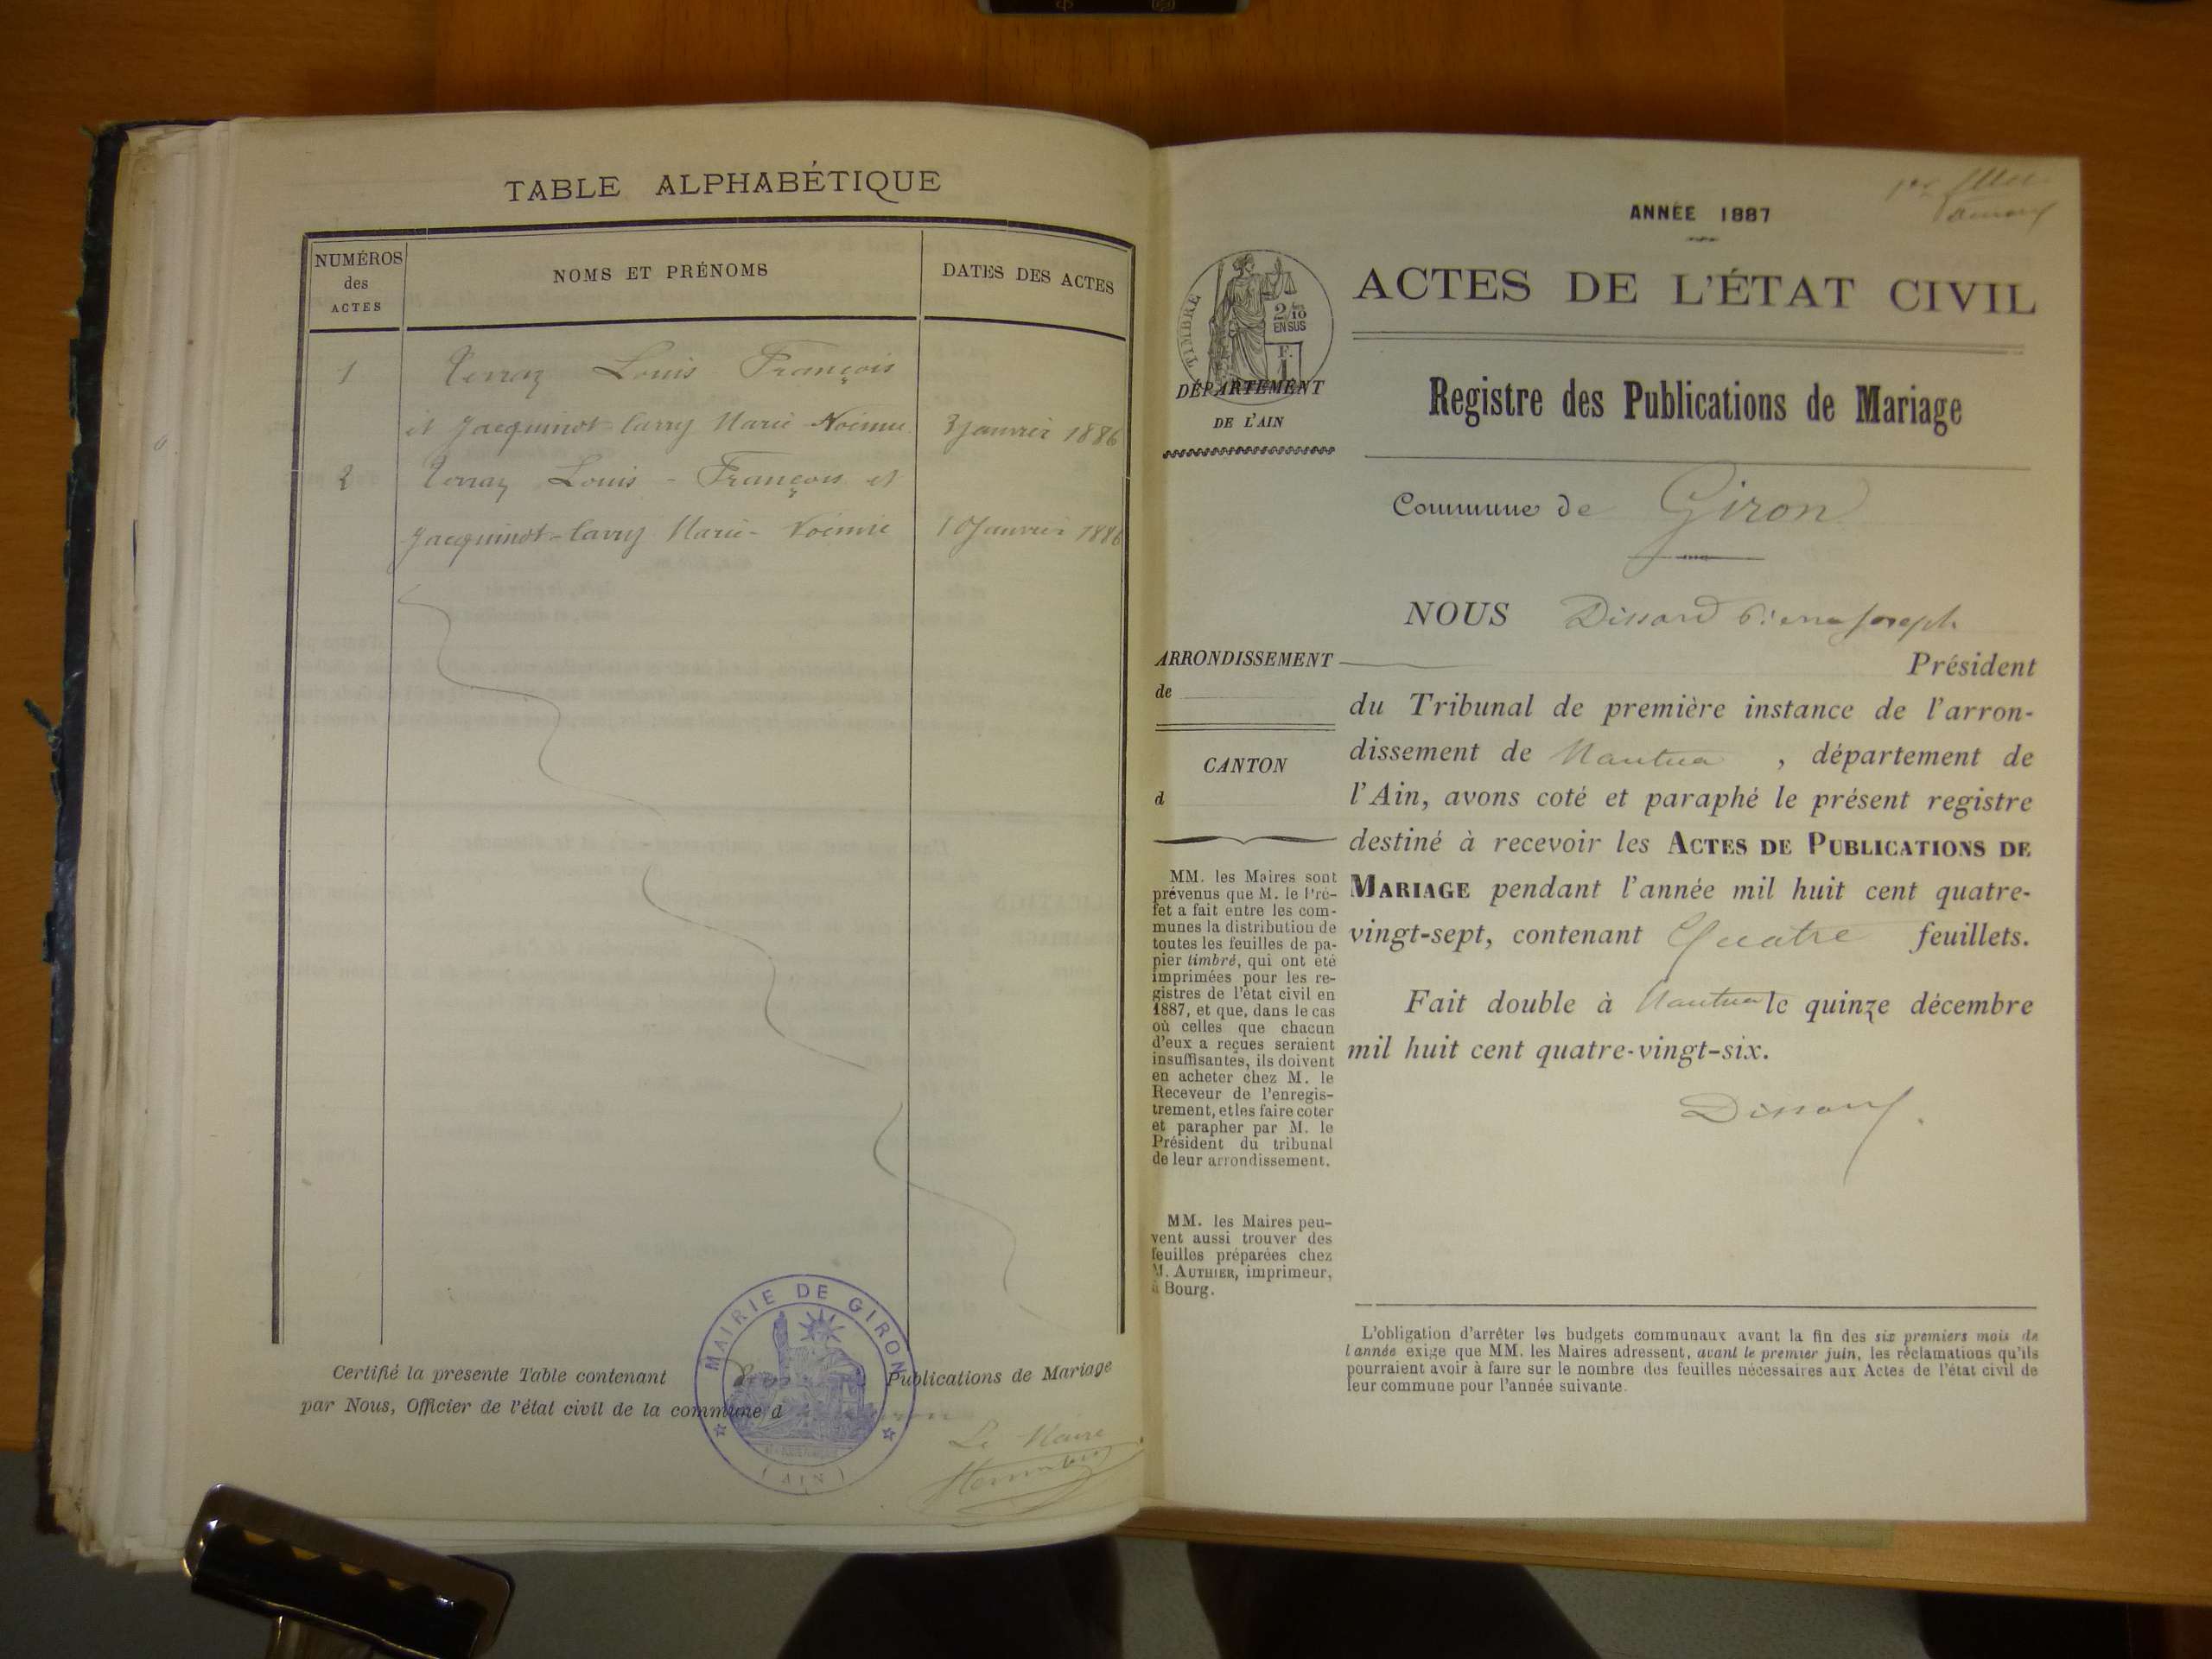 TABLE ALPHABÉTIQUE
NUMÉROS
des
ACTES
NOMS ET PRÉNOMS
DATES DES ACTES
1 Louis François
et Jacquinot Carry Marie Noémie 3 janvier 1886
2 Louis - François et
Jacquinot-Carry Marie-Noémie 10 Janvier 1886
Certifié la presente Table contenant deux Publications de Mariage
par Nous, Officier de l'état civil de la commune d
MAIRIE DE GIRON
(AIN)
Le Maire
1er
ANNÉE 1887
ACTES DE L'ÉTAT CIVIL
TIMBRE
2/10
EN SUS
F.
1
DÉPARTEMENT
DE L'AIN
Registre des Publications de Mariage
Commune de Giron
NOUS Dissard Pierre Joseph
Président
du Tribunal de première instance de l'arron-
dissement de Nantua , département de
l'Ain, avons coté et paraphé le présent registre
destiné à recevoir les ACTES DE PUBLICATIONS DE
MARIAGE pendant l'année mil huit cent quatre-
vingt-sept, contenant Quatre feuillets.
Fait double à Nantua le quinze décembre
mil huit cent quatre-vingt-six.
Dissard
ARRONDISSEMENT
de
CANTON
d
MM. les Maires sont
prévenus que M. le Pré-
fet a fait entre les com-
munes la distribution de
toutes les feuilles de pa-
pier timbré, qui ont été
imprimées pour les re-
gistres de l'état civil en
1887, et que, dans le cas
où celles que chacun
d'eux a reçues seraient
insuffisantes, ils doivent
en acheter chez M. le
Receveur de l'enregis-
trement, et les faire coter
et parapher par M. le
Président du tribunal
de leur arrondissement.
MM. les Maires peu-
vent aussi trouver des
feuilles préparées chez
M. AUTHIER, imprimeur,
à Bourg.
L'obligation d'arrêter les budgets communaux avant la fin des six premiers mois de
l'année exige que MM. les Maires adressent, avant le premier juin, les réclamations qu'ils
pourraient avoir à faire sur le nombre des feuilles nécessaires aux Actes de l'état civil de
leur commune pour l'année suivante.